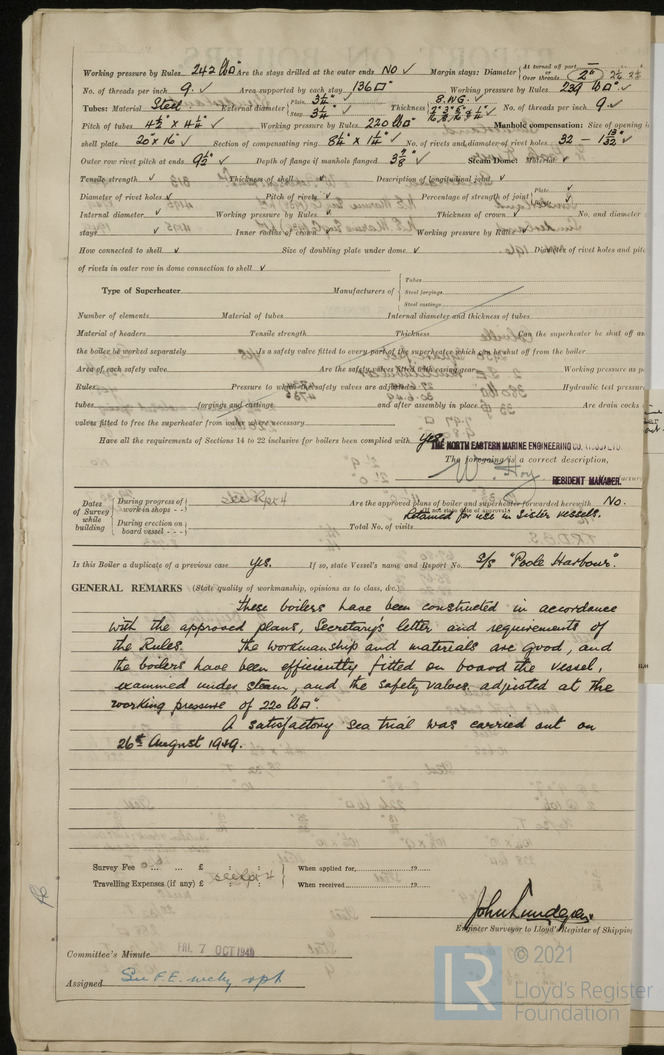 Working pressure by Rules 242 lb□" Are the stays drilled at the outer ends NO ✓ Margin stays: Diameter { At turned off part, — Over threads 2"
No. of threads per inch 9. ✓ Area supported by each stay 136□" Working pressure by Rules 239 lb□" ✓
Tubes: Material Steel External diameter { Plain 3¼" Stay 3¼" Thickness { 8.W.G. ✓ No. of threads per inch 9 ✓
Pitch of tubes 4½" × 4¼" ✓ Working pressure by Rules 220 lb□" Manhole compensation: Size of opening i
shell plate 20" × 16" ✓ Section of compensating ring 8¼" × 1¼" ✓ No. of rivets and diameter of rivet holes 32 – 1 13/32" ✓
Outer row rivet pitch at ends 9½" ✓ Depth of flange if manhole flanged 3⅞" ✓ Steam Dome: Material ✓
Tensile strength ✓ Thickness of shell ✓ Description of longitudinal joint ✓
Diameter of rivet holes ✓ Pitch of rivets ✓ Percentage of strength of joint { Plate ✓
Internal diameter ✓ Working pressure by Rules ✓ Thickness of crown ✓ No. and diameter
stays ✓ Inner radius of crown ✓ Working pressure by Rules ✓
How connected to shell ✓ Size of doubling plate under dome ✓ Diameter of rivet holes and pitc
of rivets in outer row in dome connection to shell ✓
Type of Superheater Manufacturers of { Tubes Steel forgings Steel castings
Number of elements Material of tubes Internal diameter and thickness of tubes
Material of headers Tensile strength Thickness Can the superheater be shut off as
the boiler be worked separately Is a safety valve fitted to every part of the superheater which can be shut off from the boiler
Area of each safety valve Are the safety valves fitted with easing gear Working pressure as p
Rules Pressure to which the safety valves are adjusted Hydraulic test pressure
tubes forgings and castings and after assembly in place Are drain cocks
valves fitted to free the superheater from water where necessary
Have all the requirements of Sections 14 to 22 inclusive for boilers been complied with Yes.
THE NORTH EASTERN MARINE ENGINEERING CO. (1938) LTD.
The foregoing is a correct description,
W. Hoy RESIDENT MANAGER.
Dates of Survey while building { During progress of work in shops - - During erection on board vessel - - - see Rpt 4
Are the approved plans of boiler and superheater forwarded herewith No.
Retained for use in Sister vessels.
Total No. of visits
Is this Boiler a duplicate of a previous case Yes. If so, state Vessel's name and Report No. S/S "Poole Harbour".
GENERAL REMARKS (State quality of workmanship, opinions as to class, &c.)
These boilers have been constructed in accordance
with the approved plans, Secretary's letter and requirements of
the Rules. The workmanship and materials are good, and
the boilers have been efficiently fitted on board the vessel,
examined under steam, and the safety valves adjusted at the
working pressure of 220 lb□".
A satisfactory sea trial was carried out on
26th August 1949.
Survey Fee ... ... £ : : } When applied for, 19
Travelling Expenses (if any) £ see Rpt 4 : : } When received 19
John Lundgren
Engineer Surveyor to Lloyd's Register of Shipping
Committee's Minute FRI. 7 OCT 1949
Assigned See F.E. mchy rpt
© 2021
LR Lloyd's Register
Foundation